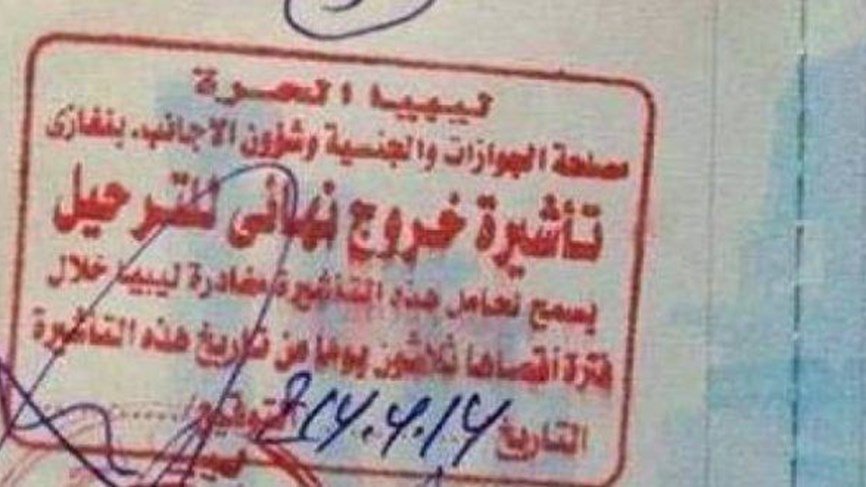 ليبيا الحرة
مصلحة الجوازات والجنسية وشؤون الاجانب. بنغازى
تأشيرة خروج نهائى للترحيل
يسمح لحامل هذه التأشيرة مغادرة ليبيا خلال
فترة أقصاها ثلاثون يوما من تاريخ هذه التأشيرة
التاريخ التوقيع/........